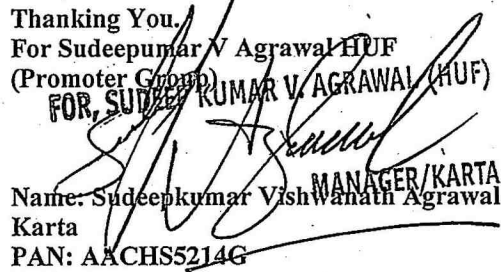 Thanking You.
For Sudeepumar V Agrawal HUF
(Promoter Group)
FOR, SUDEEP KUMAR V. AGRAWAL (HUF)
MANAGER/KARTA
Name: Sudeepkumar Vishwanath Agrawal
Karta
PAN: AACHS5214G